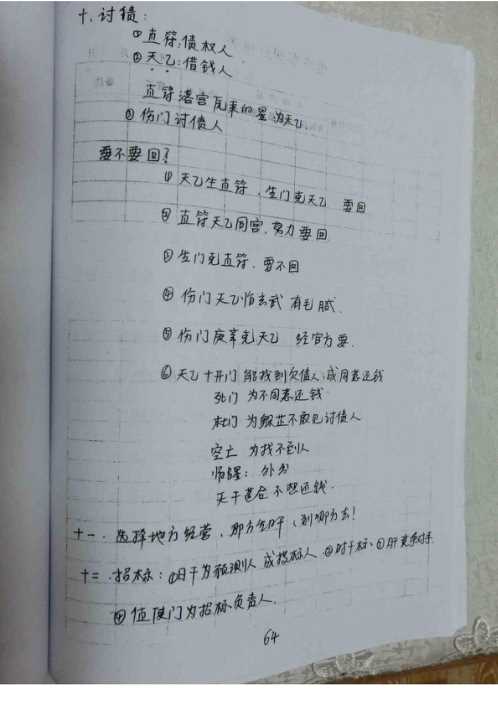 十.讨债:
①直符:债权人
②天乙:借钱人
直符落宫原来的星为天乙.
③伤门讨债人
要不要回?
①天乙生直符,生门克天乙 要回
②直符天乙同宫.努力要回
③生门克直符.要不回
④伤门天乙临玄武 有毛腻.
⑤伤门庚辛克天乙 经官方要.
⑥天乙十开门 能找到欠债人,或同意还钱
死门 为不同意还钱
杜门 为躲芷不敢见讨债人
空亡 为找不到人
马星: 外出
天干遁合 不想还钱.
十一.选择地方经营,那方生旺,到哪方去!
十二.招标:①日干为预测人 或投标人.②时干标.③月干竞争对手.
④值使门为招标负责人.
64